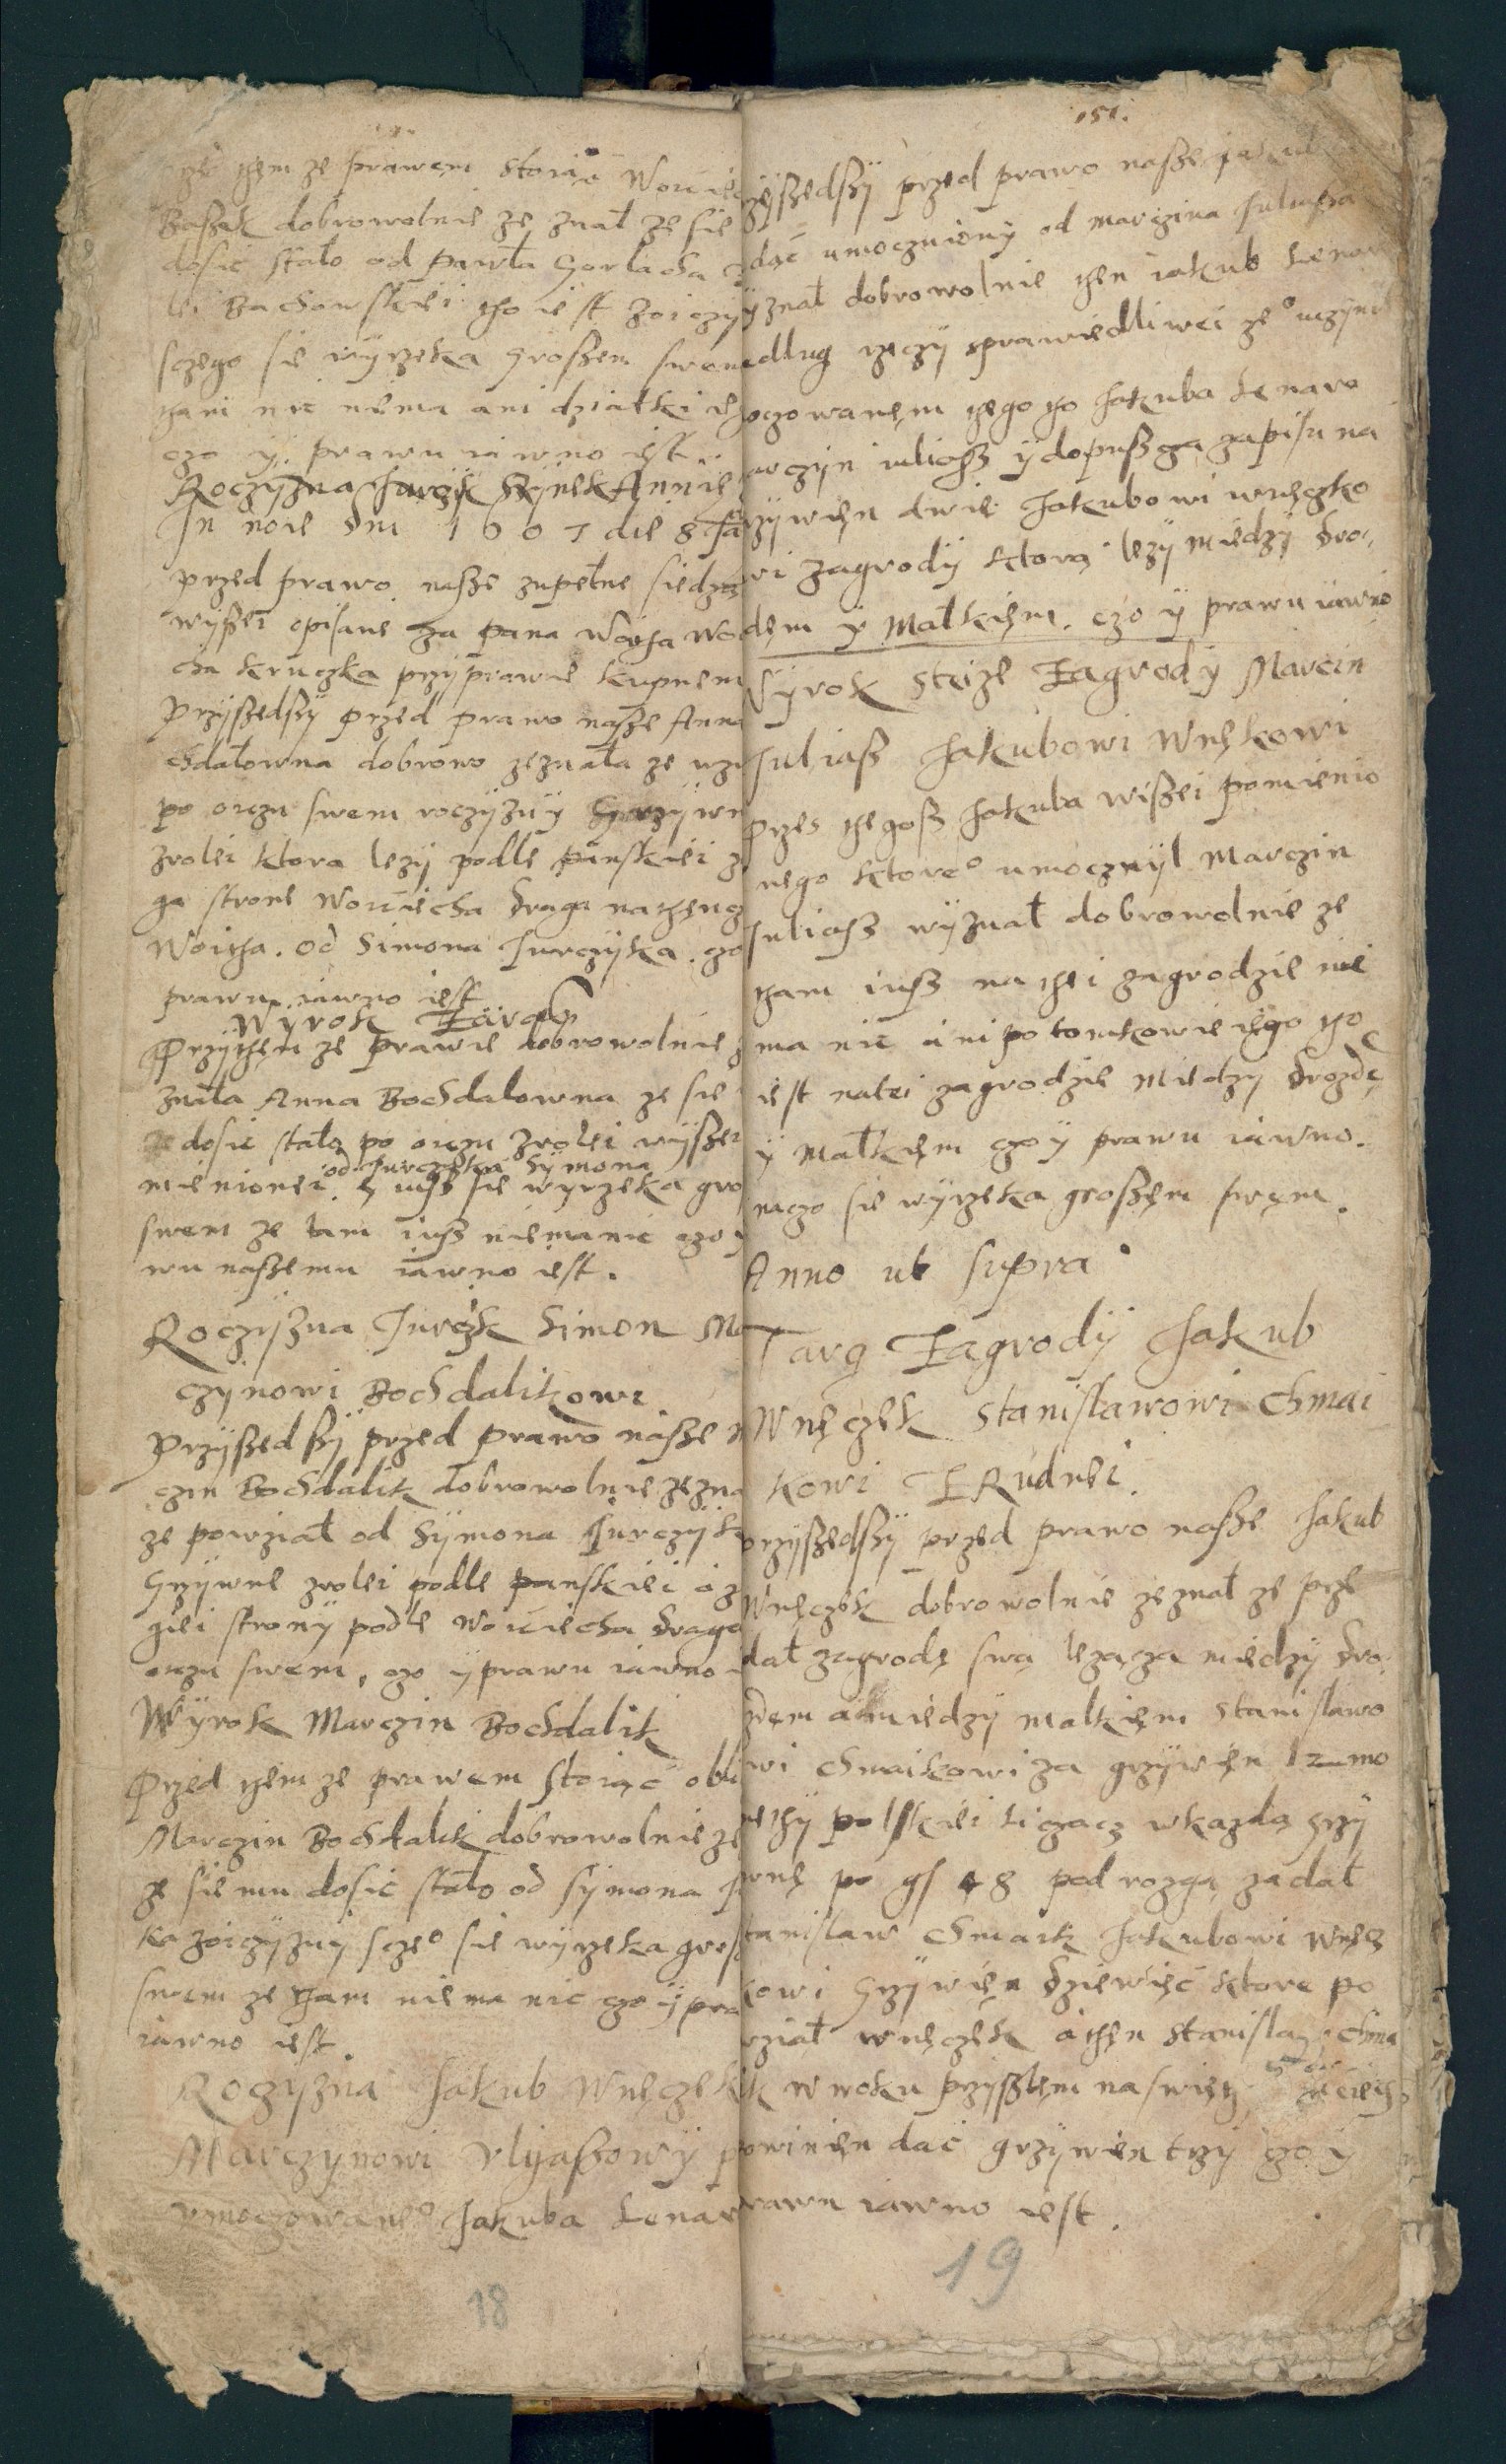 them ze prawem stoiąc Woicie
Baszak dobrowolnie ze znał ze sie
dosic stało od Pawła Gorlacha
lei Bachowskiei tho iest zoiczy
sczego sie wyrzeka groszem swem
tham nic niema ani dziatki ie
czo y prawu iawno iest.
Roczyzna Jurczyk Szymek Annie
In noie dni 1607 die 8 Ja
przed prawo nasze zupełne siedzą
wyszei opisane za pana Woitha Wo
cha Kruczka przy prawie kupnem
Przyszedszy przed prawo nasze Anna
chdałowna dobrowo zeznała ze
po oiczu swem roczyzny Grzywn
zrolei ktora lezy podle panskiei z
ga strone Woiciecha Draga
Woitha. od Simona Jurczyka. czo
prawu iawno iest
Wyrok
Przythem ze prawie dobrowolnie
znała Anna Bochdalowna ze sie
ze dosic stało po oicu zrolei wyszei
od Jurczyka Symona
mienionei y iusz sie wyrzeka gro
swem ze tam iusz niemanic czo y
wu naszemu iawno iest.
Roczyzna Jurczk Simon Ma
czynowi Bochdalikowi
Przyszedszy przed prawo nasze
czin Bochdalik dobrowolnie zezna
ze powział od Symona Jurczyk
Grzywne zrolei podle panskiei a z
giei strony podle Woiciecha Draga
oiczu swem, czo y prawu iawno
Wyrok Marczin Bochdalik
Przed them ze prawem stoiąc obli
Marczin Bochdalik dobrowolnie ze
ze sie mu dosic stało od Symona
ka zoiczyzny sczeo sie wyrzeka gros
swem ze tham niema nic czo y pra
iawno iest.
Roczyzna Jakub Wnęczek
Marczynowi Vlyaszowy p
vmoczowaneo Jakuba Lenar
18
151.
zyszedszy przed prawo nasze
dąc umoczniony od Marczina Juliasza
yznał dobrowolnie then iakub Lenar
edlug rzeczy sprawiedliwei zeo uczynił
oczowanem thego tho Jakuba Lenaro
arczyn iuliasz y dopuszcza zapisu na
rzywien dwie Jakubowi wnęczko
wi zagrody ktora lezy miedzy Dro
dem y Małkięm. czo y prawu iawno
Wyrok steize Zagrody Marcin
Juliasz Jakubowi Wnękowi
Przes thegosz Jakuba wiszei pomienio
nego ktoreo umocznyl Marczin
Juliasz wyznał dobrowolnie ze
tham iusz na thei zagrodzie nie
ma nic ani potomkowie iego tho
iest natei zagrodzie miedzy Drozdę
y małkięm czo y prawu iawno.
niczo sie wyrzeka groszęm swęm.
Anno ut supra
Targ Zagrody Jakub
Wnęczek Stanisławowi Chmai
kowi Z Rudnei.
Przyszedszy przed prawo nasze Jakub
Wnęczek dobrowolnie zeznał ze prze
dał zagrodę swą lezącza miedzy Dro
zdem a miedzy małkięm Stanisławo
wi Chmaikowi za grzywien 12 mo
nethy polskiei liczącz wkazdą Grzy
wnę po gs 48 pod rozgą zadał
tanislaw Chmaik Jakubowi Wnęcz
kowi Grzywien Dziewięc ktore po
wział wnęczek a then Stanislaw Chma
ik w roku przyszłem na swięty
owinien dac grzywien trzy czo y
rawu iawno iest.
19